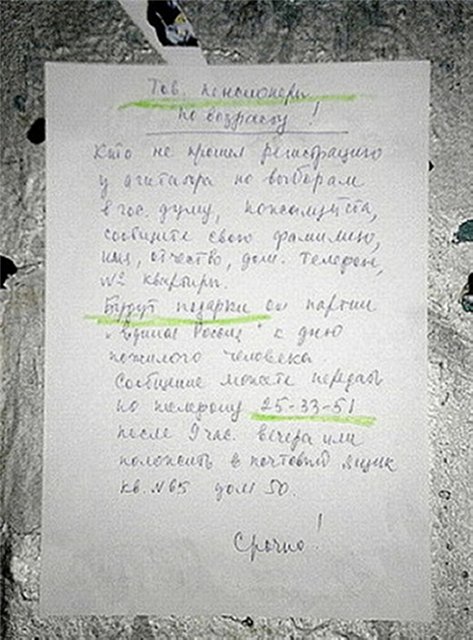 Тов. пенсионеры
по возрасту!
Кто не прошел регистрацию
у агитатора по выборам
в гос. думу, пожалуйста,
сообщите свою фамилию,
имя, отчество, дом. телефон,
№ квартиры.
Будут подарки от партии
"Единая Россия" к дню
пожилого человека.
Сообщение можете передать
по телефону 25-33-51
после 9 час. вечера или
положить в почтовый ящик
кв. №65 дом 50.
Срочно!